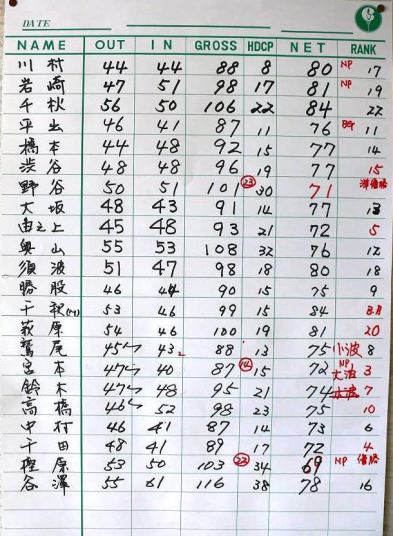 DATE
NAME OUT IN GROSS HDCP NET RANK
川村 44 44 88 8 80 NP 17
岩崎 47 51 98 17 81 NP 19
千秋 56 50 106 22 84 22
平出 46 41 87 11 76 BG 11
橋本 44 48 92 15 77 14
渋谷 48 48 96 19 77 15
野谷 50 51 101 23 30 71 準優勝
大坂 48 43 91 14 77 13
由之上 45 48 93 21 72 5
奥山 55 53 108 32 76 12
須波 51 47 98 18 80 18
勝股 46 44 90 15 75 9
千秋 53 46 99 15 84 B.B
萩原 54 46 100 19 81 20
鷲尾 45 43 88 13 75 小波 8
宮本 47 40 87 14 15 72 NP 大波 3
鈴木 47 48 95 21 74 水波 7
高橋 46 52 98 23 75 10
中村 46 41 87 14 73 6
千田 48 41 89 17 72 4
樫原 53 50 103 22 34 69 NP 優勝
谷澤 55 61 116 38 78 16